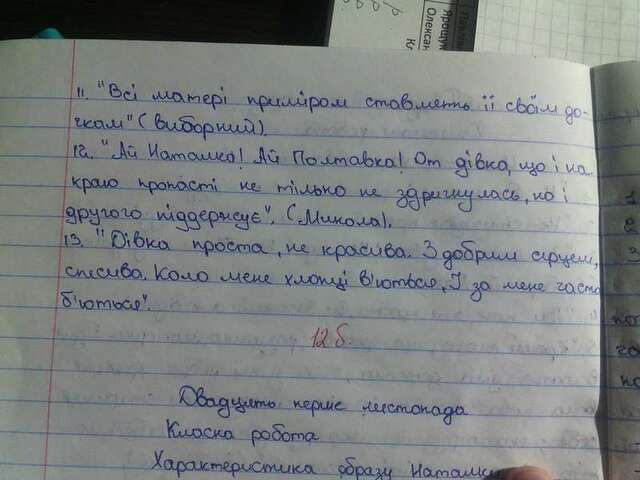 Олексан
11. "Всі матері приміром ставлять її своїм до-
чкам" (Виборний).
12. "Ай Наталка! Ай Полтавка! От дівка, що і на
краю пропасті не тілько не здригнулась, но і
другого піддержує". (Микола).
13. "Дівка проста, не красива. З добрим серцем,
спесива. Коло мене хлопці в'ються, І за мене часто
б'ються".
12 б.
Двадцять перше листопада
Класка робота
Характеристика образу Наталки